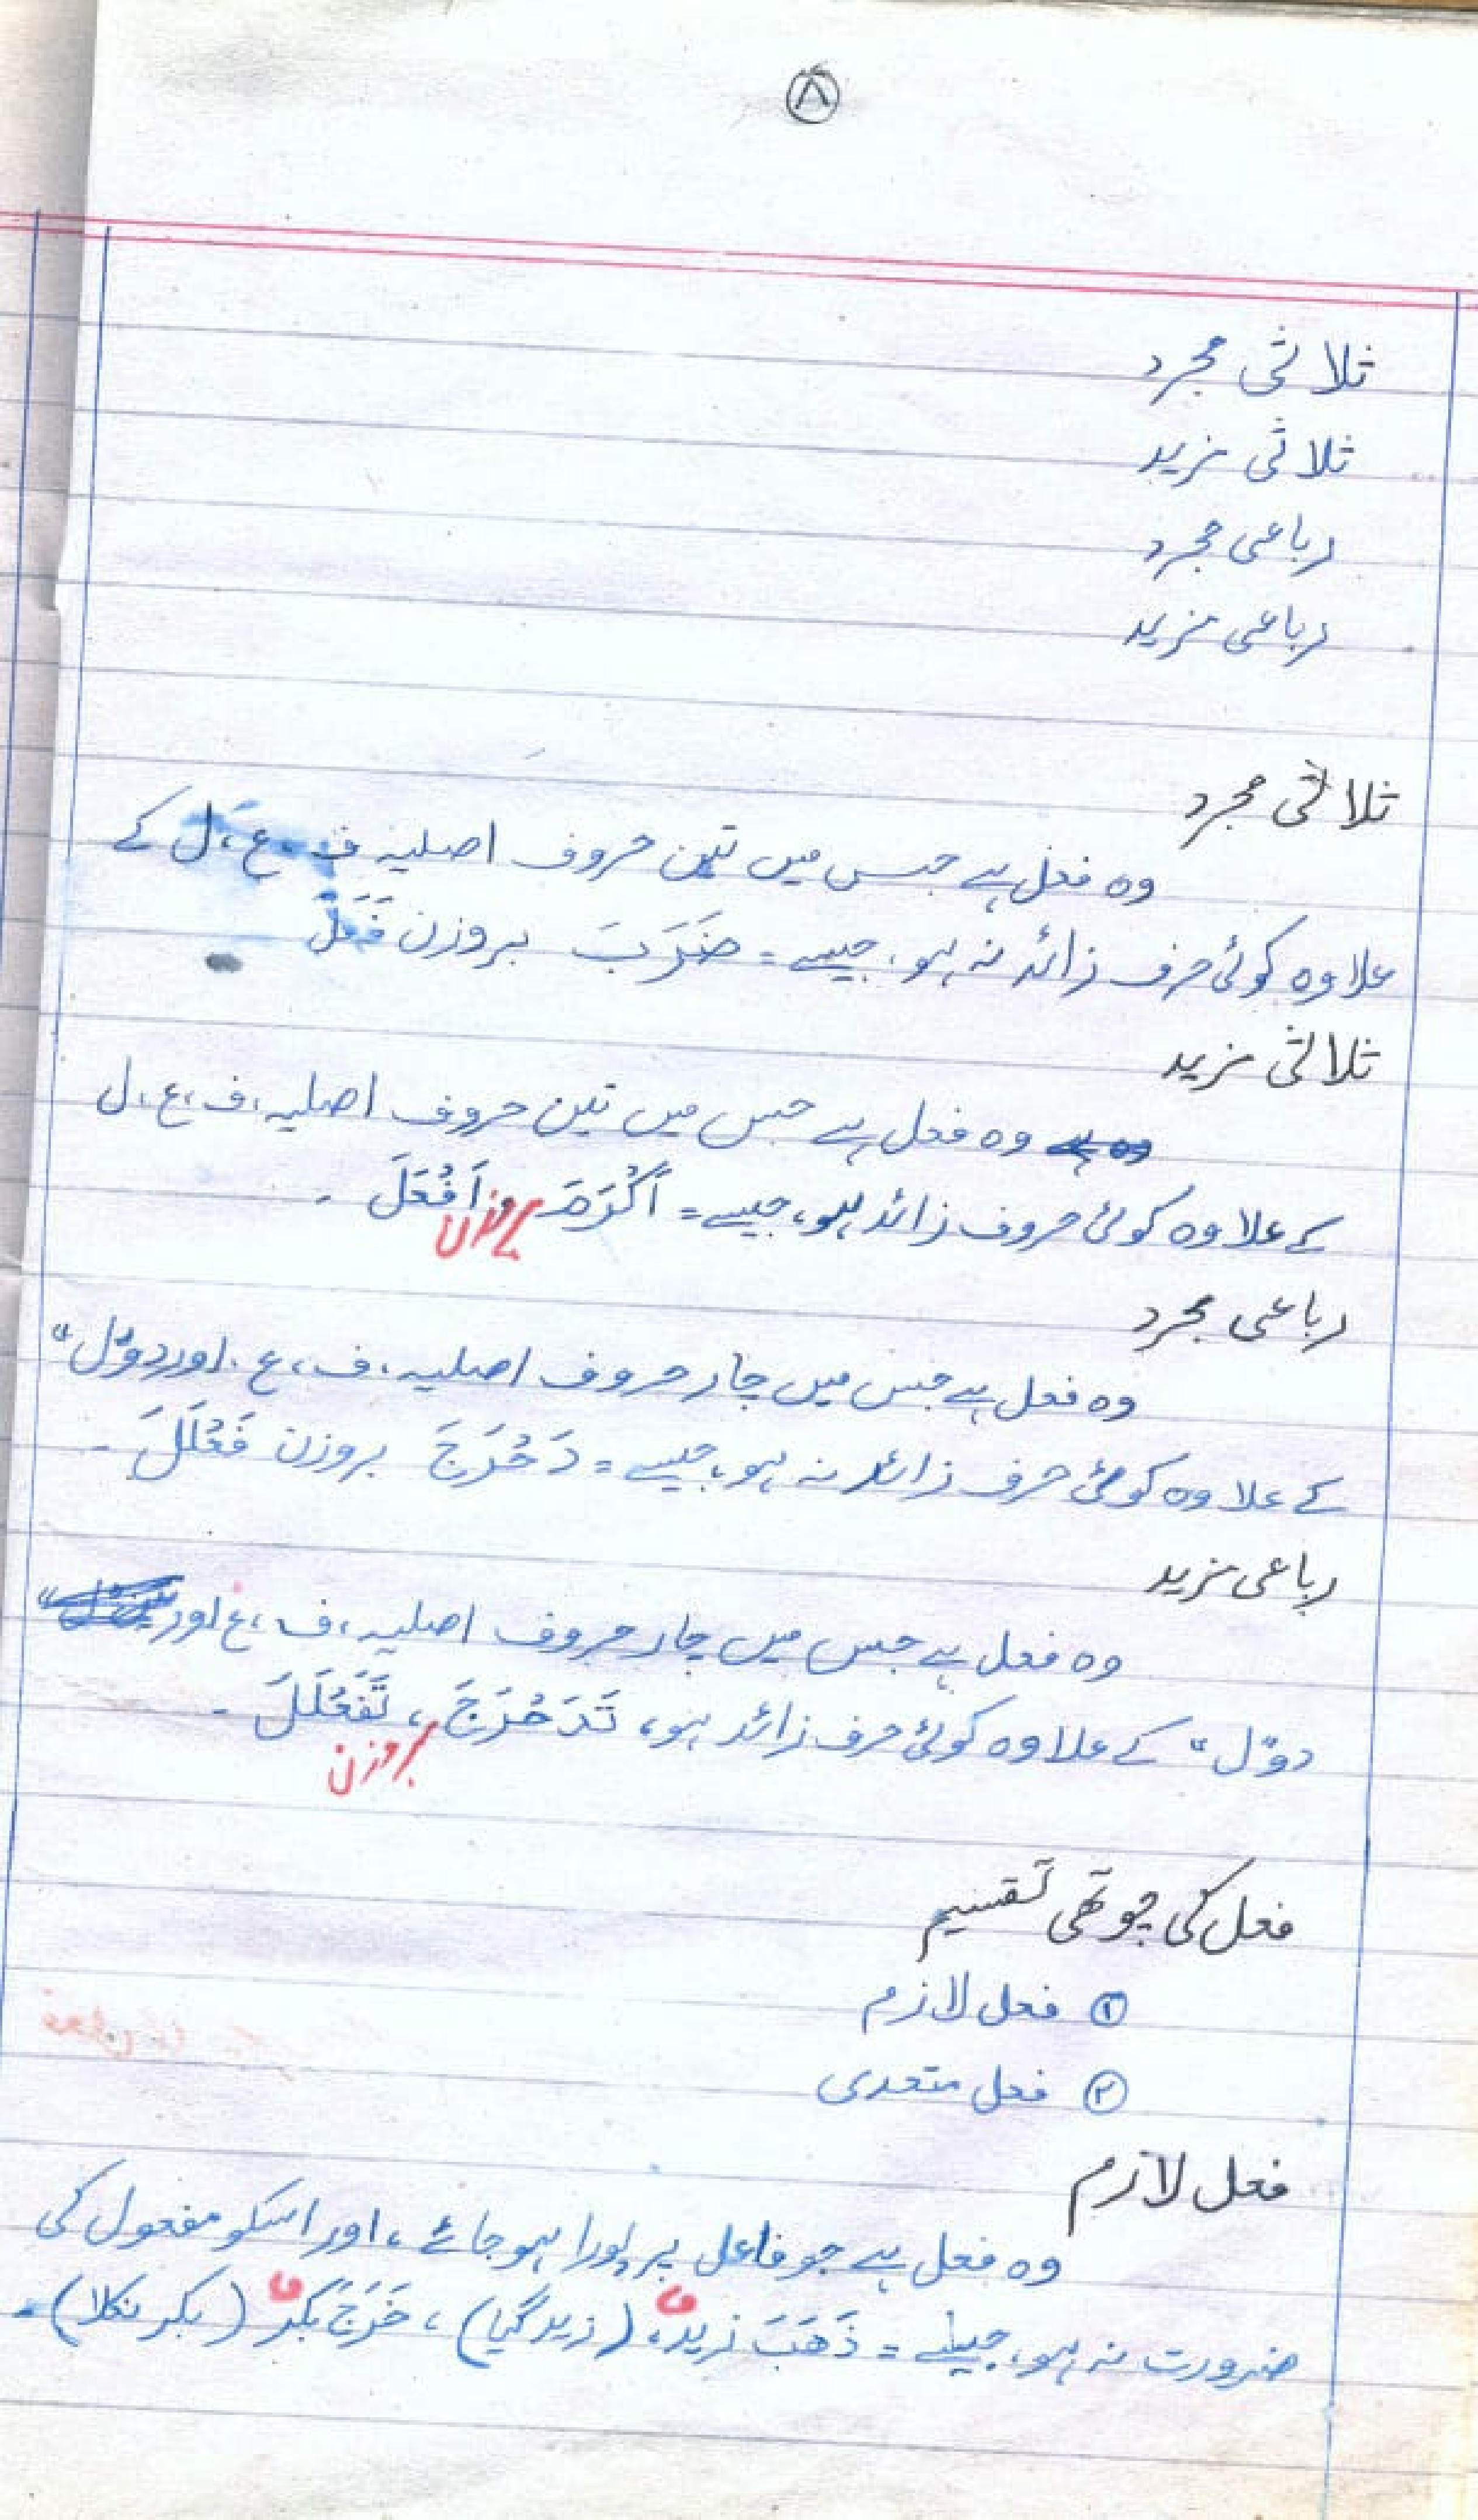 ۸
ثلاثی مجرد
ثلاثی مزید
رباعی مجرد
رباعی مزید
ثلاثی مجرد
وہ فعل ہے جس میں تین حروف اصلیہ ف،ع،ل کے
علاوہ کوئی حرف زائد نہ ہو، جیسے = ضَرَبَ بروزن فَعَلَ
ثلاثی مزید
وہ فعل ہے جس میں تین حروف اصلیہ، ف،ع،ل
کے علاوہ کوئی حروف زائد ہو، جیسے = اَکْرَمَ بروزن اَفْعَلَ ۔
رباعی مجرد
وہ فعل ہے جس میں چار حروف اصلیہ، ف، ع، اور دو "ل"
کے علاوہ کوئی حرف زائد نہ ہو، جیسے = دَحْرَجَ بروزن فَعْلَلَ ۔
رباعی مزید
وہ فعل ہے جس میں چار حروف اصلیہ، ف،ع اور
دو "ل" کے علاوہ کوئی حرف زائد ہو، تَدَحْرَجَ بروزن تَفَعْلَلَ ۔
فعل کی چوتھی تقسیم
① فعل لازم
② فعل متعدی
فعل لازم
وہ فعل ہے جو فاعل پر پورا ہوجائے، اور اسکو مفعول کی
ضرورت نہ ہو، جیسے = ذَھَبَ زیدٌ، (زید گیا)، خَرَجَ بَکرٌ (بکر نکلا)۔